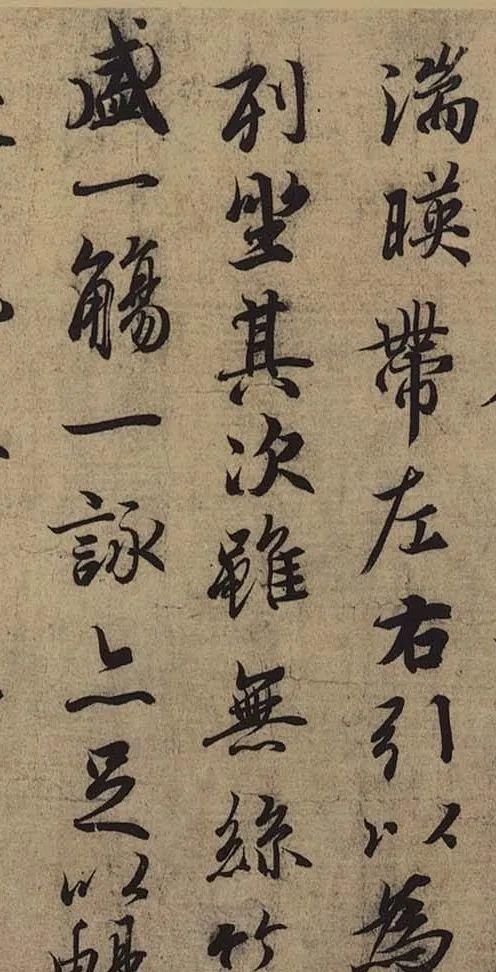 湍暎帶左右引以為
列坐其次雖無絲竹
盛一觴一詠亦足以暢